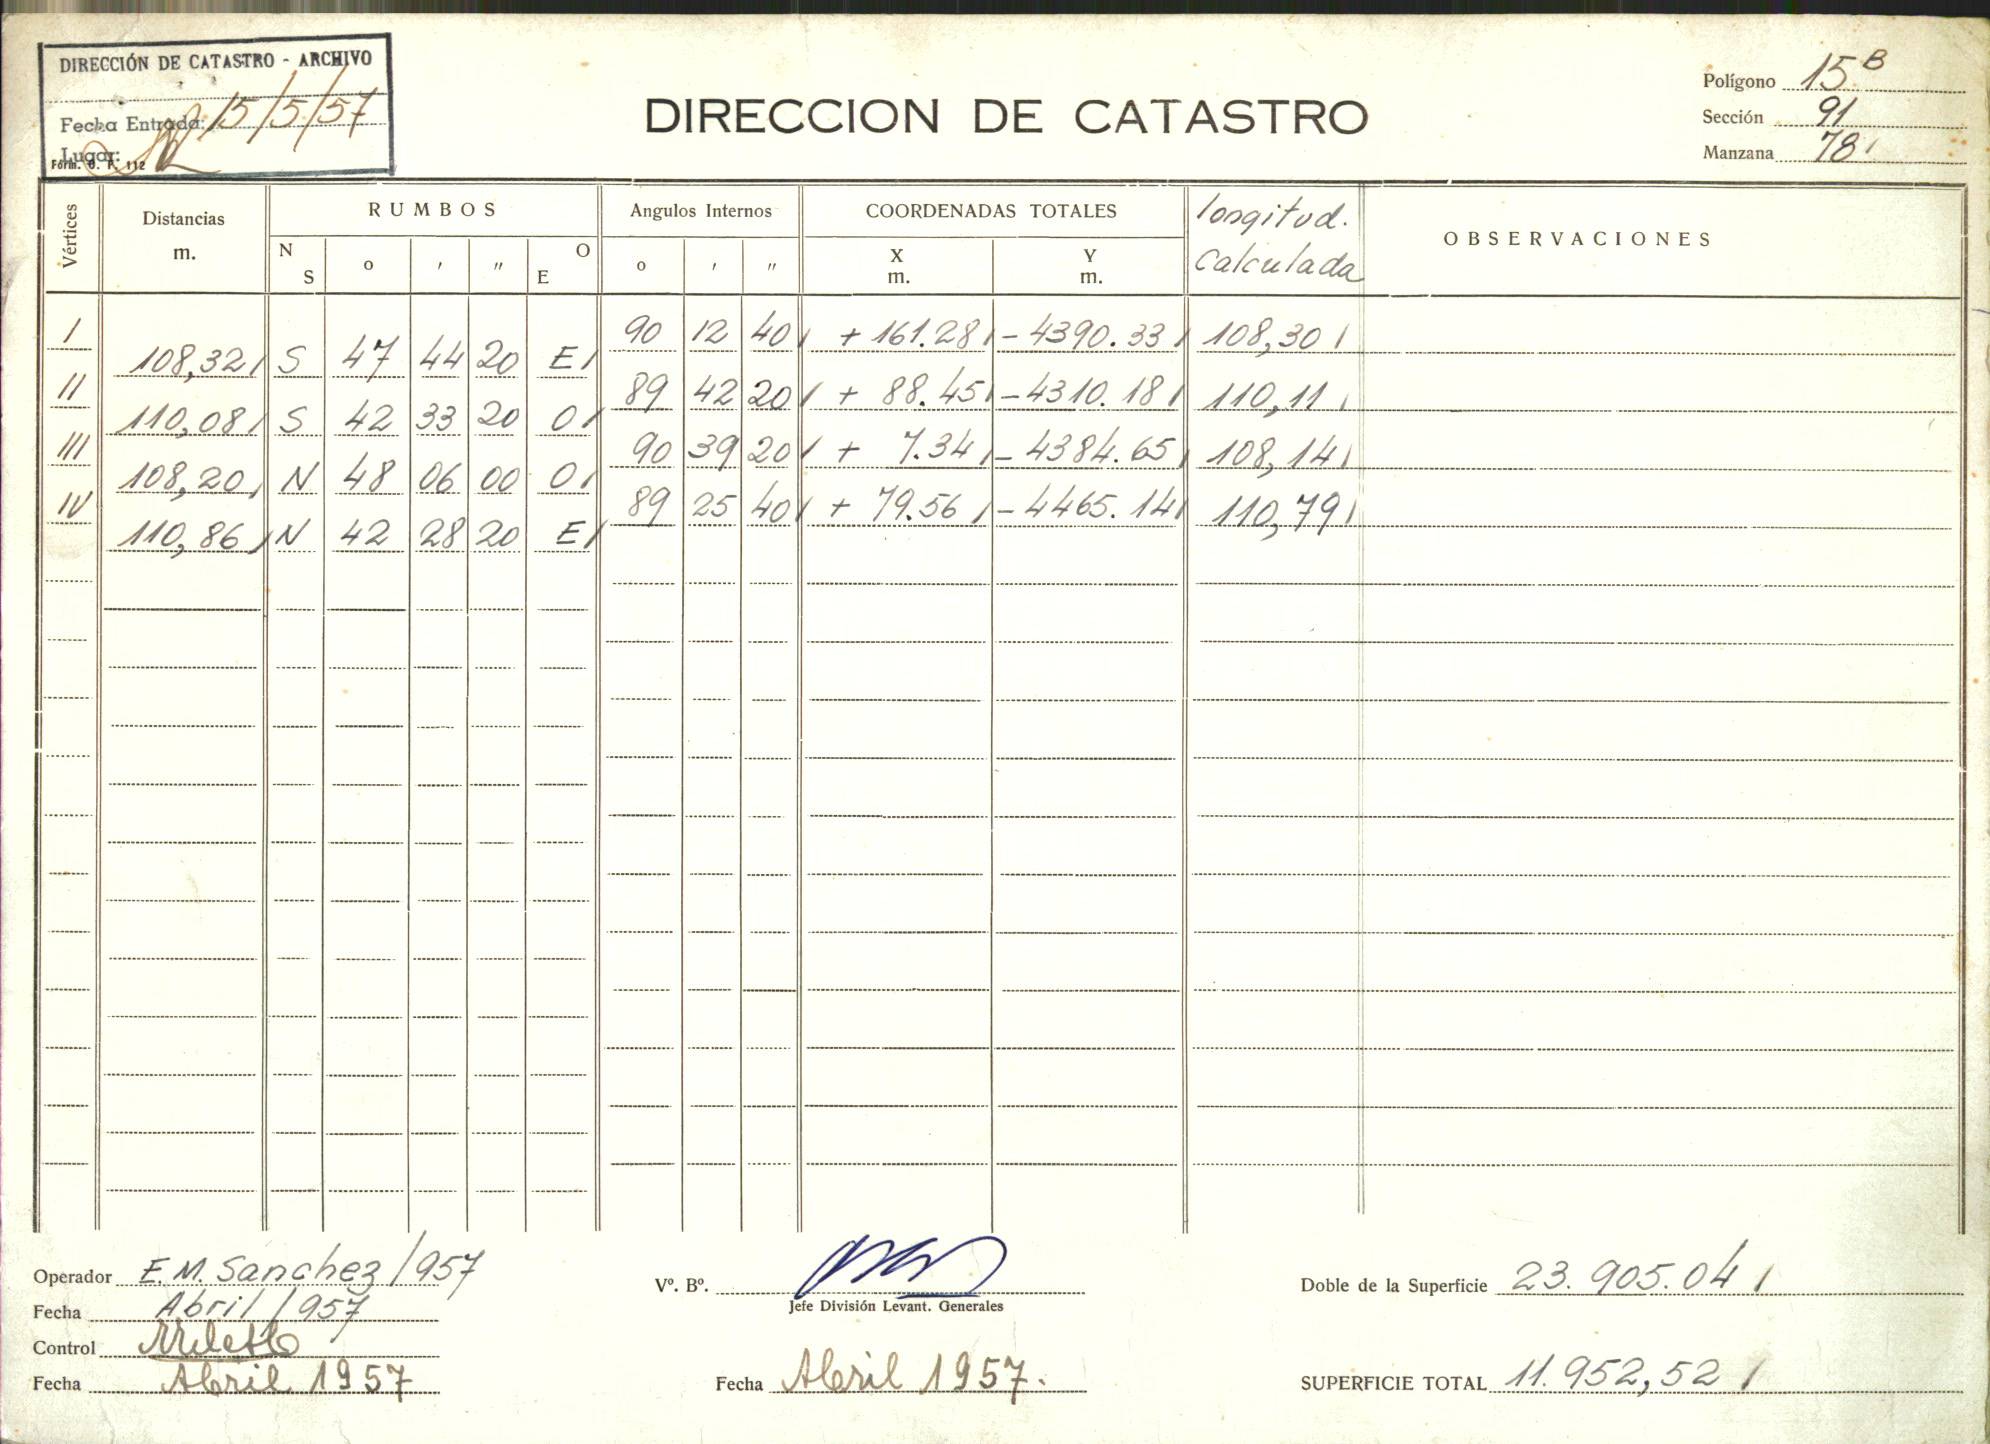 DIRECCIÓN DE CATASTRO - ARCHIVO
Fecha Entrada: 15/5/57
Lugar:
Form. O. P. 112
DIRECCION DE CATASTRO
Polígono 15 B
Sección 91
Manzana 78
Vértices Distancias m. RUMBOS N S o ' " O E Angulos Internos o ' " COORDENADAS TOTALES X m. Y m. longitud. Calculada OBSERVACIONES
I 90 12 40 + 161.28 - 4390.33 108,30
108,32 S 47 44 20 E
II 89 42 20 + 88.45 - 4310.18 110,11
110,08 S 42 33 20 O
III 90 39 20 + 7.34 - 4384.65 108,14
108,20 N 48 06 00 O
IV 89 25 40 + 79.56 - 4465.14 110,79
110,86 N 42 28 20 E
Operador E. M. Sanchez / 957
Fecha Abril / 957
Control
Fecha Abril 1957
Vº. Bº.
Jefe División Levant. Generales
Fecha Abril 1957.
Doble de la Superficie 23.905.04
SUPERFICIE TOTAL 11.952,52